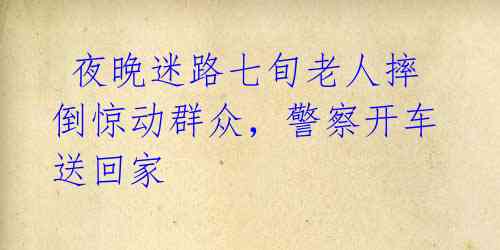 夜晚迷路七旬老人摔
倒惊动群众，警察开车
送回家